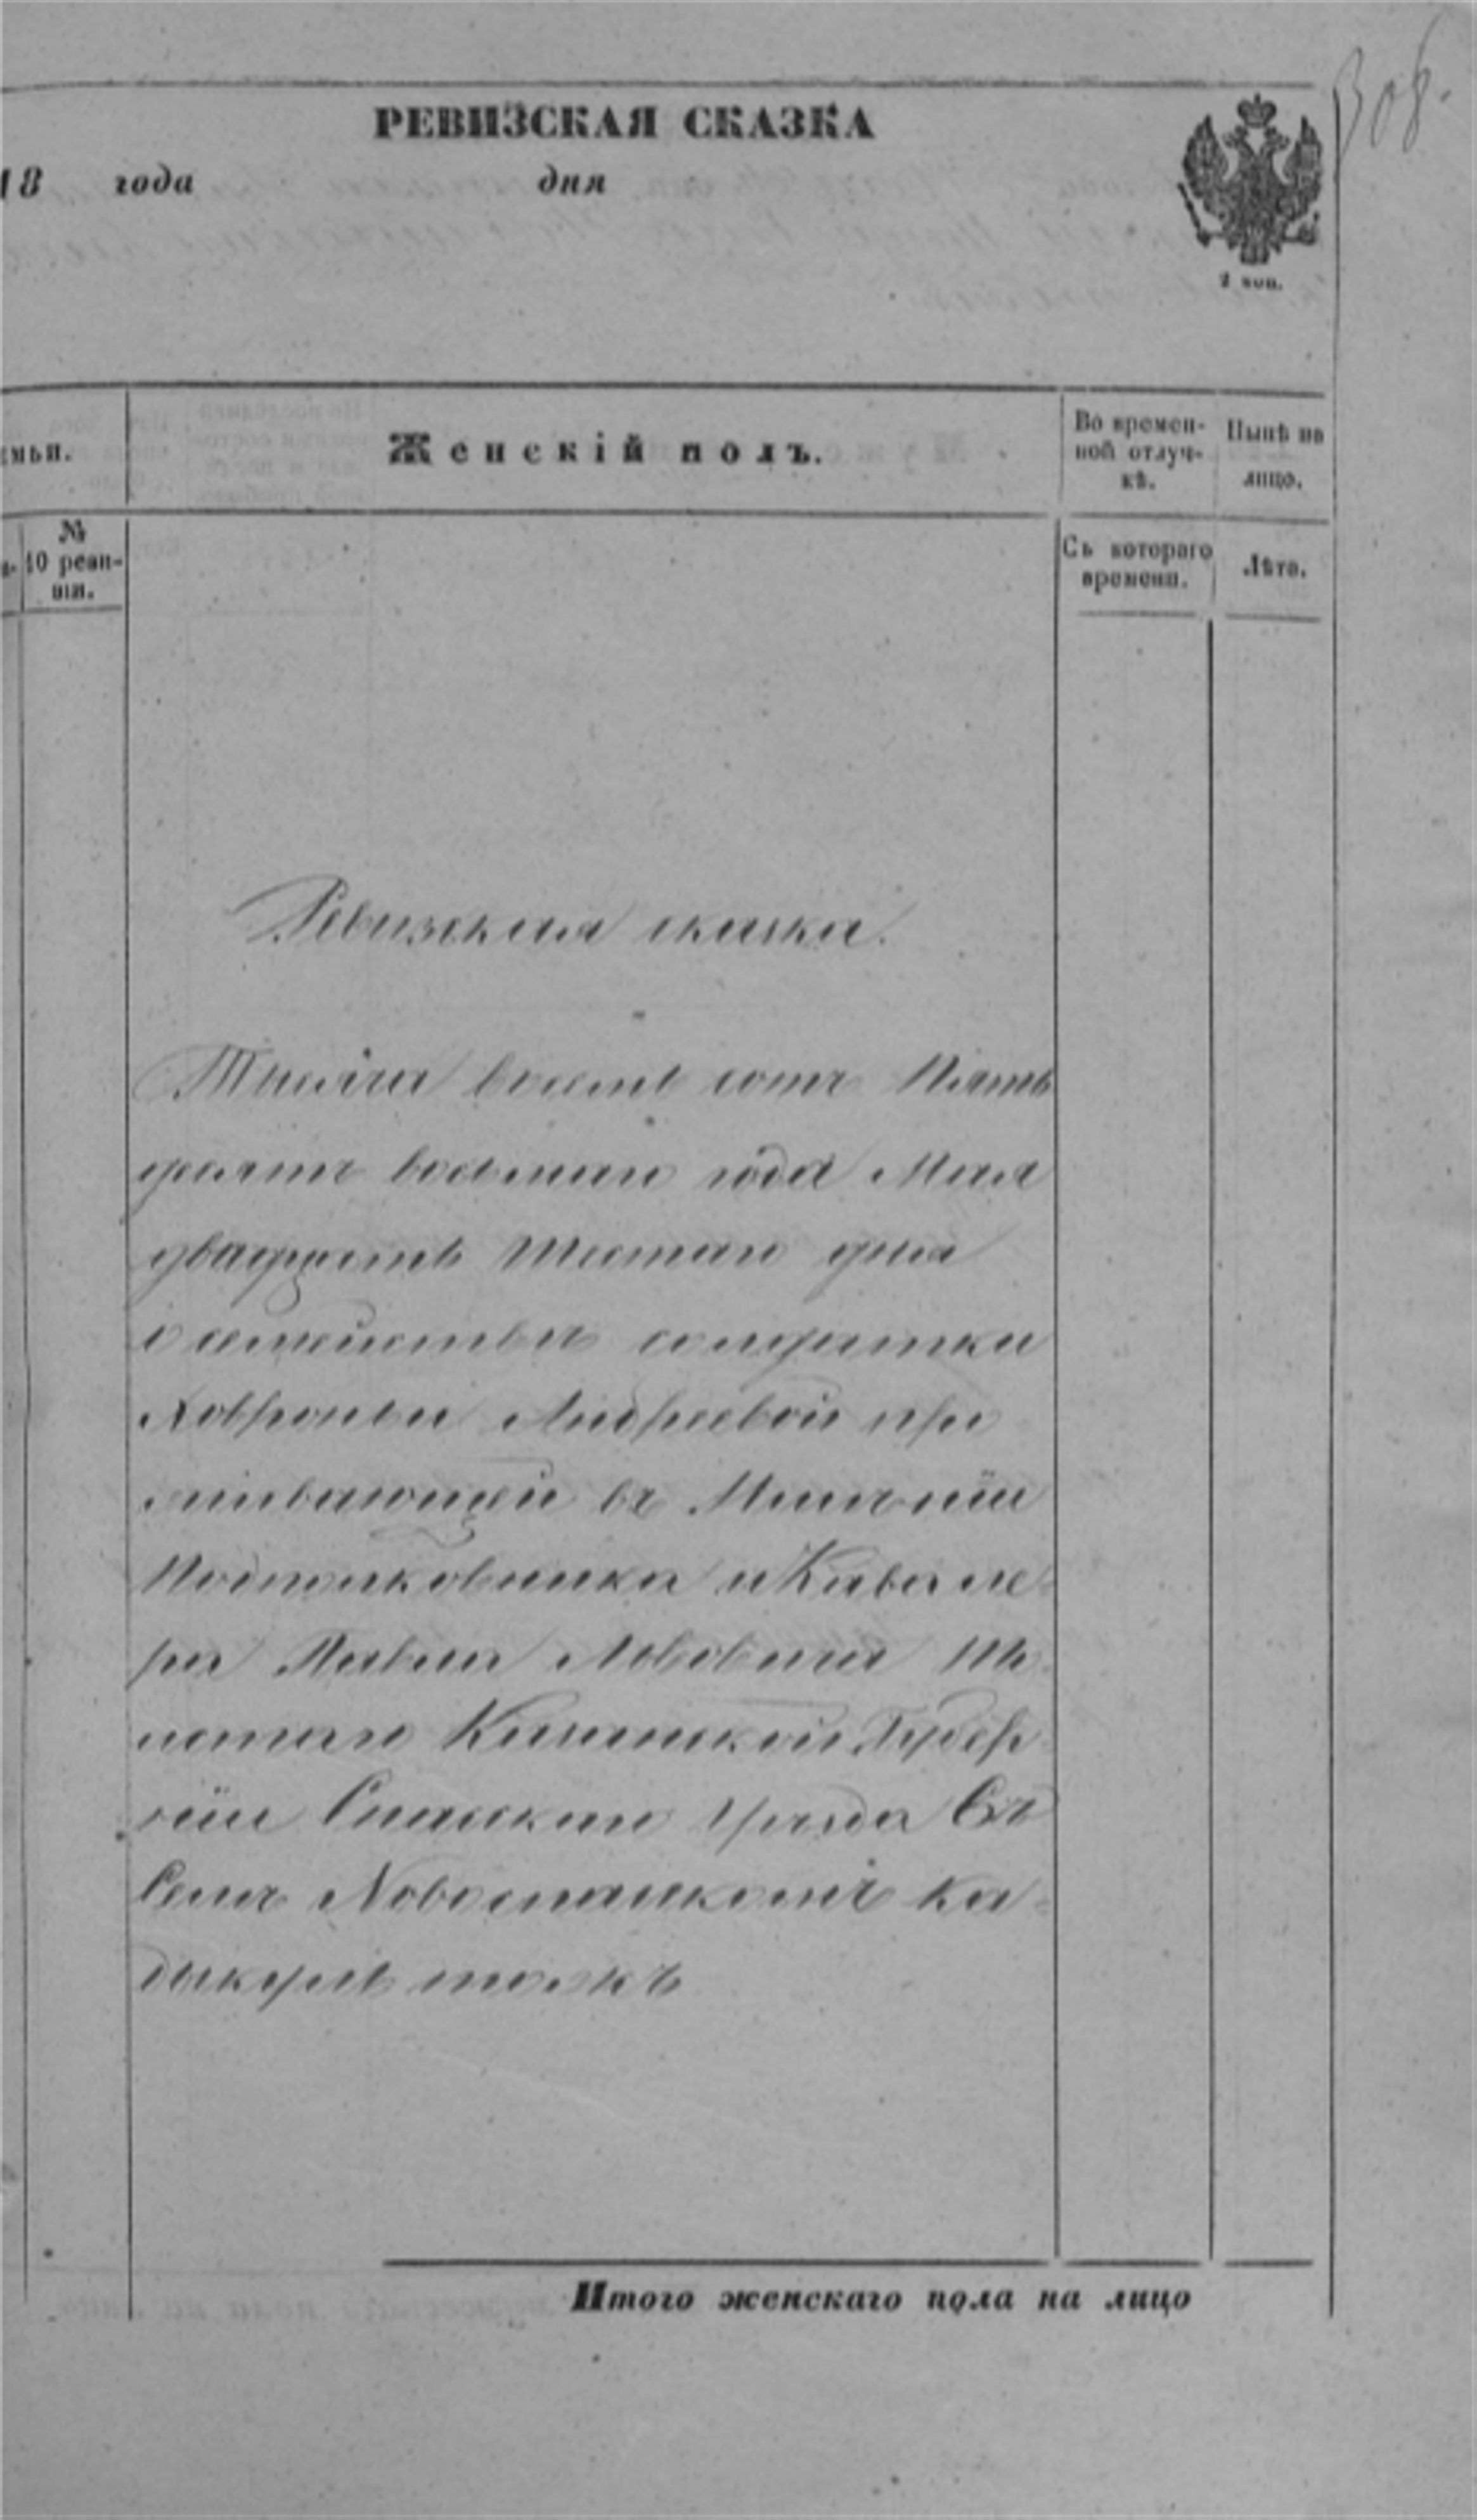 308.
РЕВИЗСКАЯ СКАЗКА
18 года дня
2 коп.
емьи.
Женскій полъ.
Во времен-
ной отлуч-
кѣ.
Нынѣ на
лицо.
№
10 реви-
зіи.
Съ котораго
времени.
Лѣта.
Ревизская сказка.
Тысяча восемь сотъ Пять
десятъ восьмаго года Мая
двадцать шестаго дня
о семействѣ солдатки
Ховроньи Андреевой про
живающей въ Имѣніи
Подполковника и Кавале-
ра Павла Львовича
Казанской Губер
ніи Спаскаго Уѣзда Въ
Селѣ Новоспаскомъ Ка-
тожъ
Итого женскаго пола на лицо